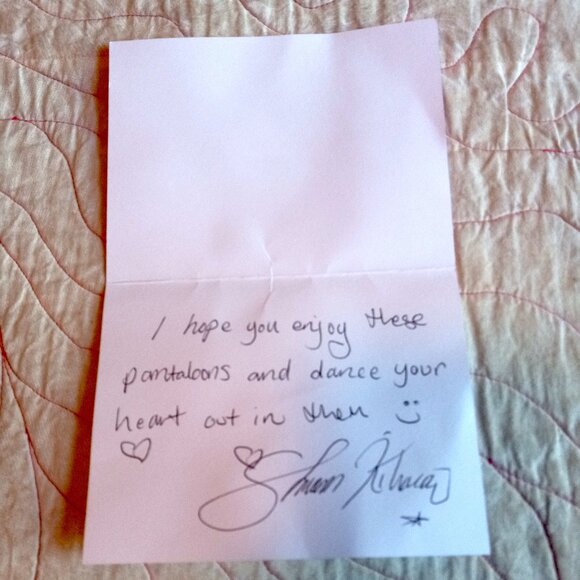 I hope you enjoy these
pantaloons and dance your
heart out in them